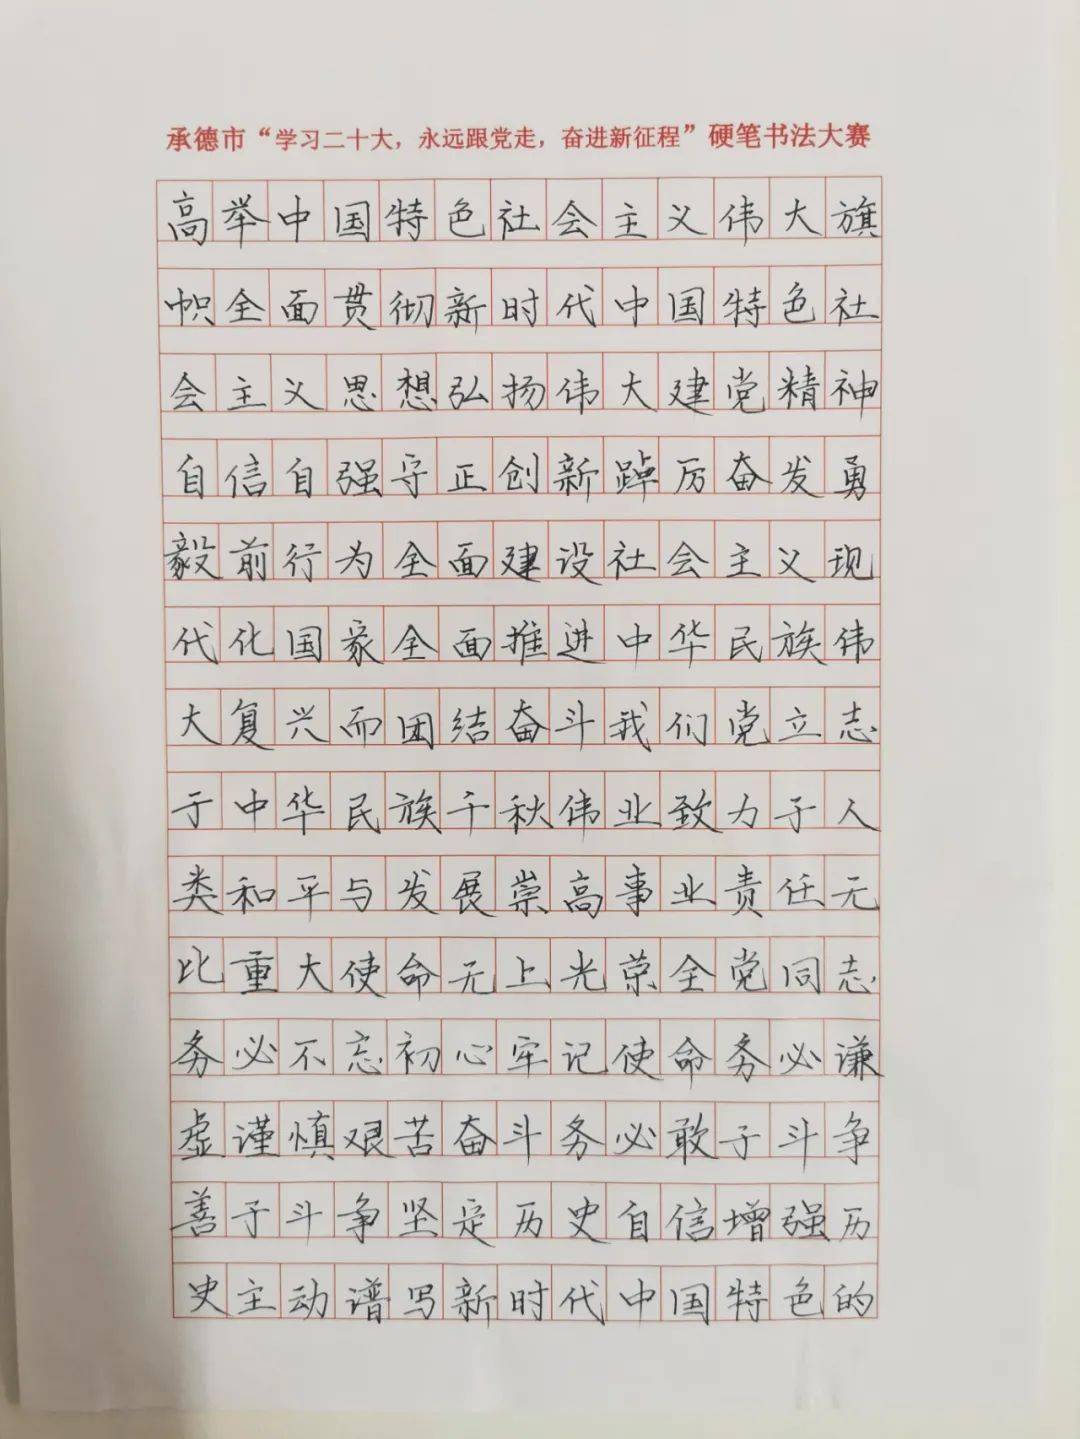 承德市“学习二十大，永远跟党走，奋进新征程”硬笔书法大赛
高举中国特色社会主义伟大旗
帜全面贯彻新时代中国特色社
会主义思想弘扬伟大建党精神
自信自强守正创新踔厉奋发勇
毅前行为全面建设社会主义现
代化国家全面推进中华民族伟
大复兴而团结奋斗我们党立志
于中华民族千秋伟业致力于人
类和平与发展崇高事业责任无
比重大使命无上光荣全党同志
务必不忘初心牢记使命务必谦
虚谨慎艰苦奋斗务必敢于斗争
善于斗争坚定历史自信增强历
史主动谱写新时代中国特色的